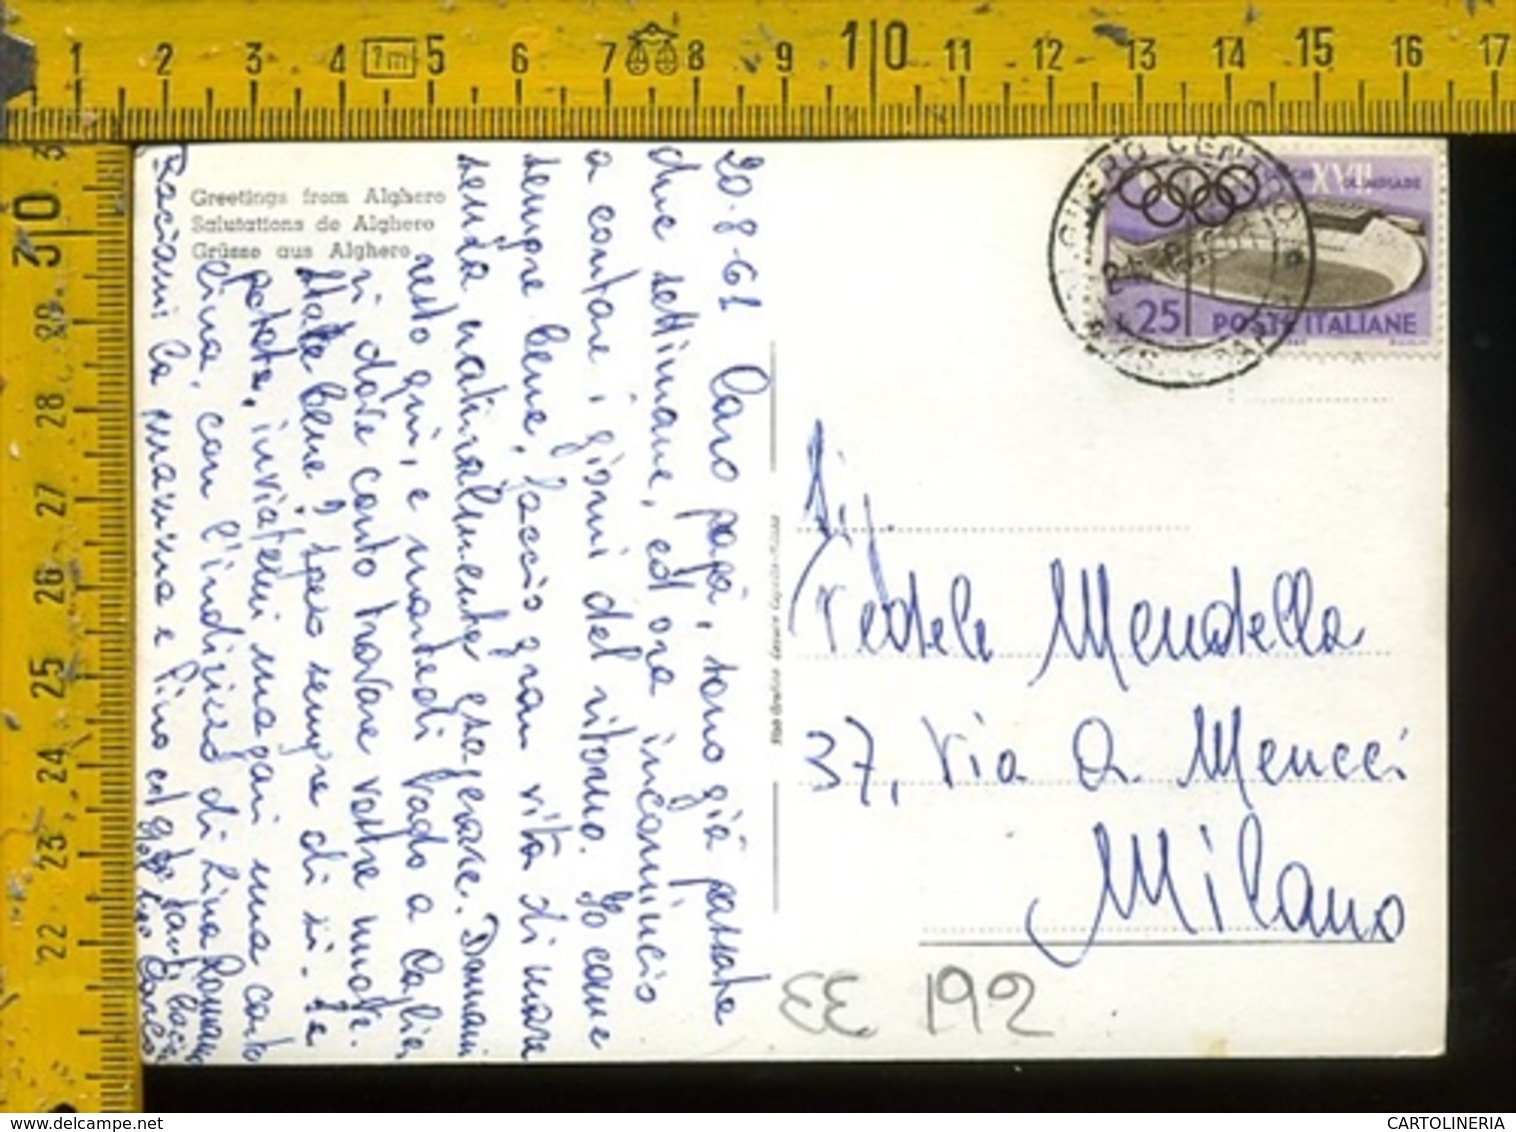 1 2 3 4 1m 5 6 7 8 9 10 11 12 13 14 15 16 17
30
29
28
27
26
25
24
23
22
Greetings from Alghero
Salutations de Alghero
Grüsse aus Alghero
20.8.61 Caro papà, sono già passate
due settimane, ed ora incomincio
a contare i giorni del ritorno. Io come
sempre bene, faccio gran vita di mare
senza naturalmente esagerare. Domani
resto qui, e martedì vado a Caglia
ri dove conto trovare vostre nuove.
State bene? Spero sempre di sì. Se
potete, inviatemi magari una carto
lina, con l'indirizzo di Lina Romano
Baciami la mamma e Pino ed
tanti baci
ALGHERO CENTRO
XVII
25 POSTE ITALIANE
Sig.
Fedele Mendella
37, Via A. Meucci
Milano
EE 192
CARTOLINERIA